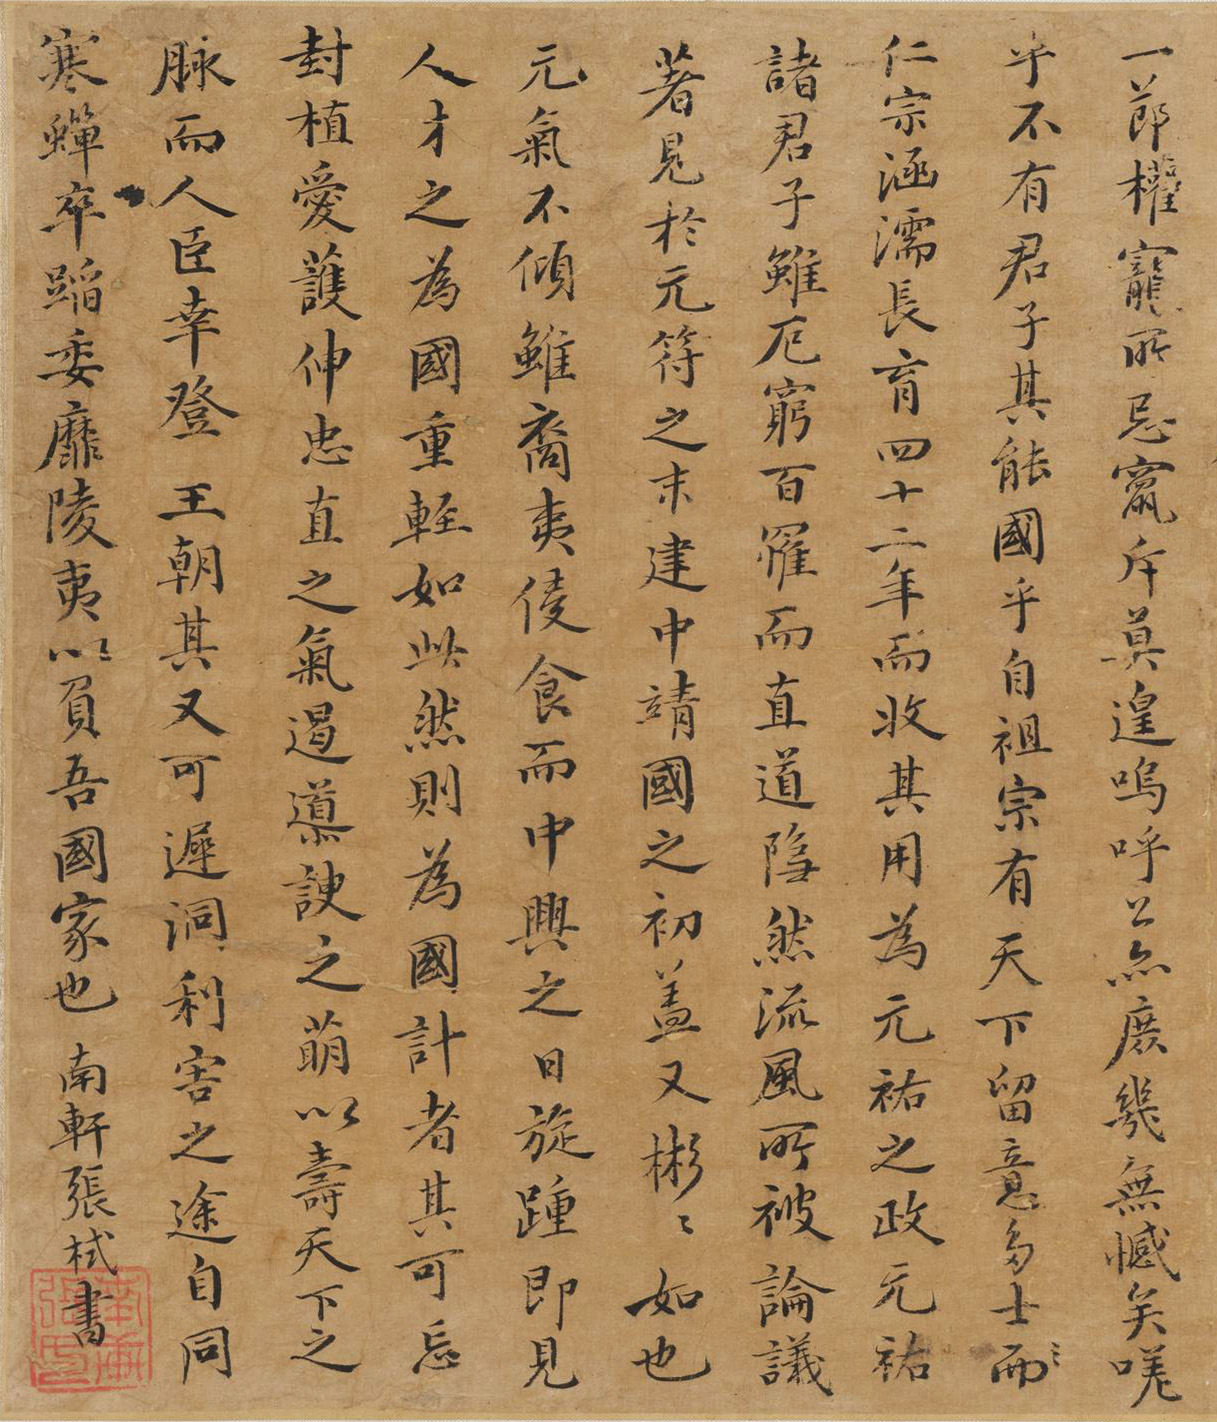 一節權寵所忌竄斥莫遑嗚呼公亦庶幾無憾矣嘆
乎不有君子其能國乎自祖宗有天下留意多士而
仁宗涵濡長育四十二年而收其用為元祐之政元祐
諸君子雖厄窮百罹而直道隱然流風所被論議
著見於元符之末建中靖國之初蓋又彬〻如也
元氣不傾雖裔夷侵食而中興之日旋踵即見
人才之為國重輕如此然則為國計者其可忘
封植愛護伸忠直之氣遏導諛之萌以壽天下之
脉而人臣幸登 王朝其又可遲洄利害之途自同
寒蟬卒蹈委靡陵夷以負吾國家也 南軒張栻書